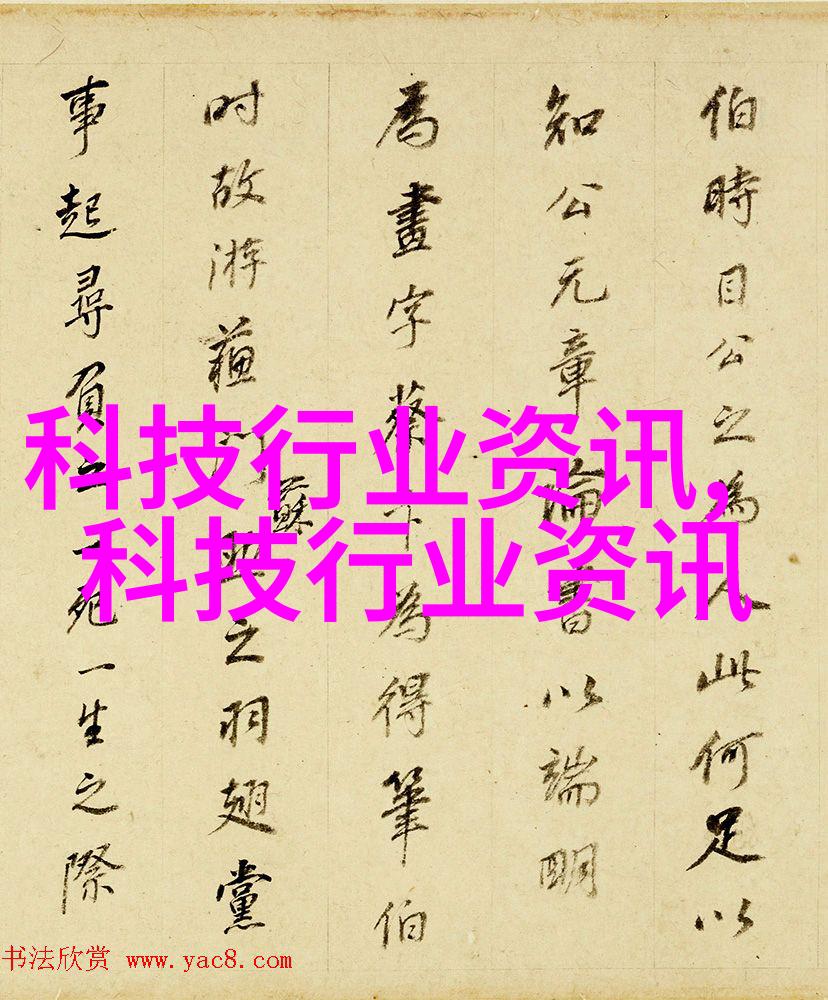 伯時目公之為人此何足以
知公元章論書以端明
為畫字蔡卞為得筆伯
时故游蘓門之羽翅黨
蘇
事起尋負之一死一生之際
科技行业资讯,
科技行业资讯
书法欣赏 www.yac8.com